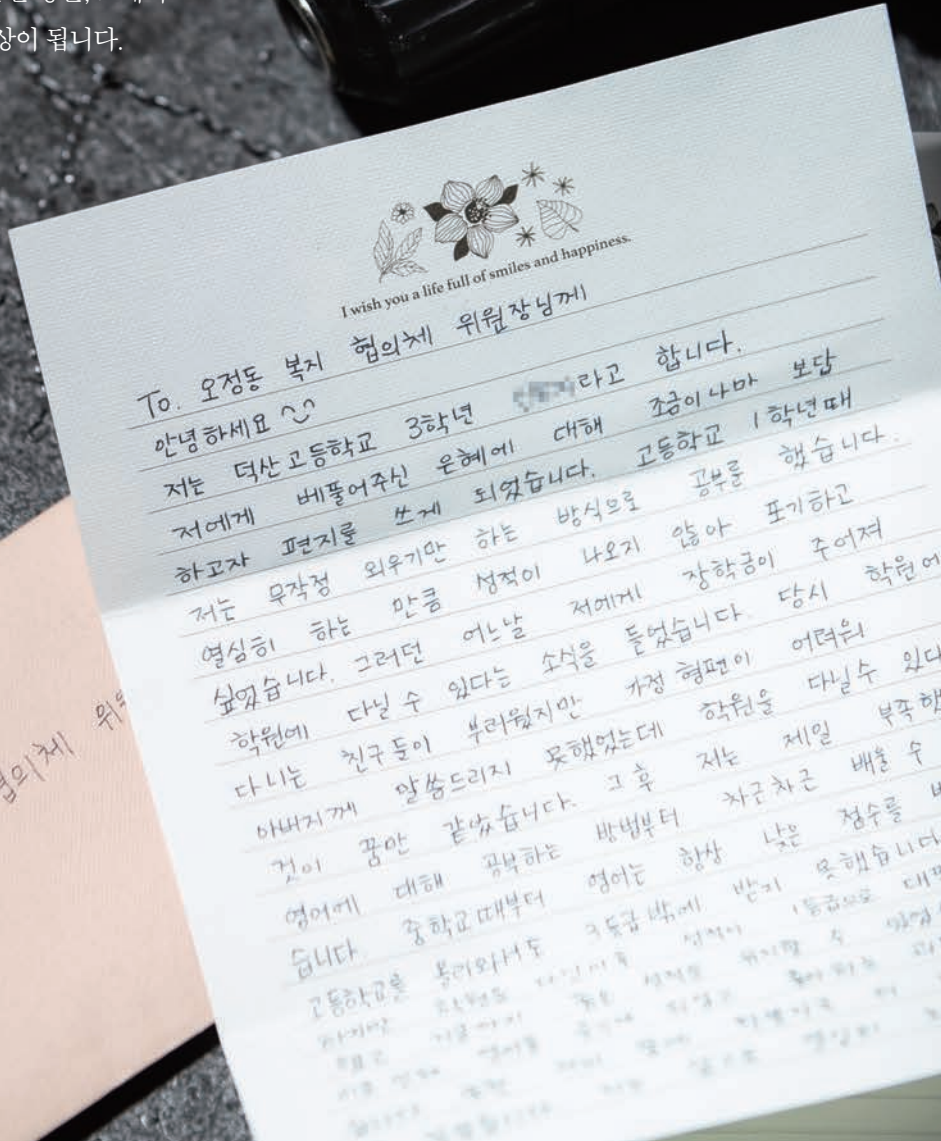 상이 됩니다.
I wish you a life full of smiles and happiness.
To. 오정동 복지 협의체 위원장님께
안녕하세요 ^^
저는 덕산고등학교 3학년 라고 합니다.
저에게 베풀어주신 은혜에 대해 조금이나마 보답
하고자 편지를 쓰게 되었습니다. 고등학교 1학년때
저는 무작정 외우기만 하는 방식으로 공부를 했습니다.
열심히 하는 만큼 성적이 나오지 않아 포기하고
싶었습니다. 그러던 어느날 저에게 장학금이 주어져
학원에 다닐 수 있다는 소식을 들었습니다. 당시 학원에
다니는 친구들이 부러웠지만 가정 형편이 어려워
아버지께 말씀드리지 못했었는데 학원을 다닐수 있다
것이 꿈만 같았습니다. 그 후 저는 제일 부족했
영어에 대해 공부하는 방법부터 차근차근 배울 수
습니다. 중학교때부터 영어는 항상 낮은 점수를
고등학교를 올라와서도 3등급밖에 받지 못했습니다
하지만 학원을 성적이 1등급으로
협의체 위